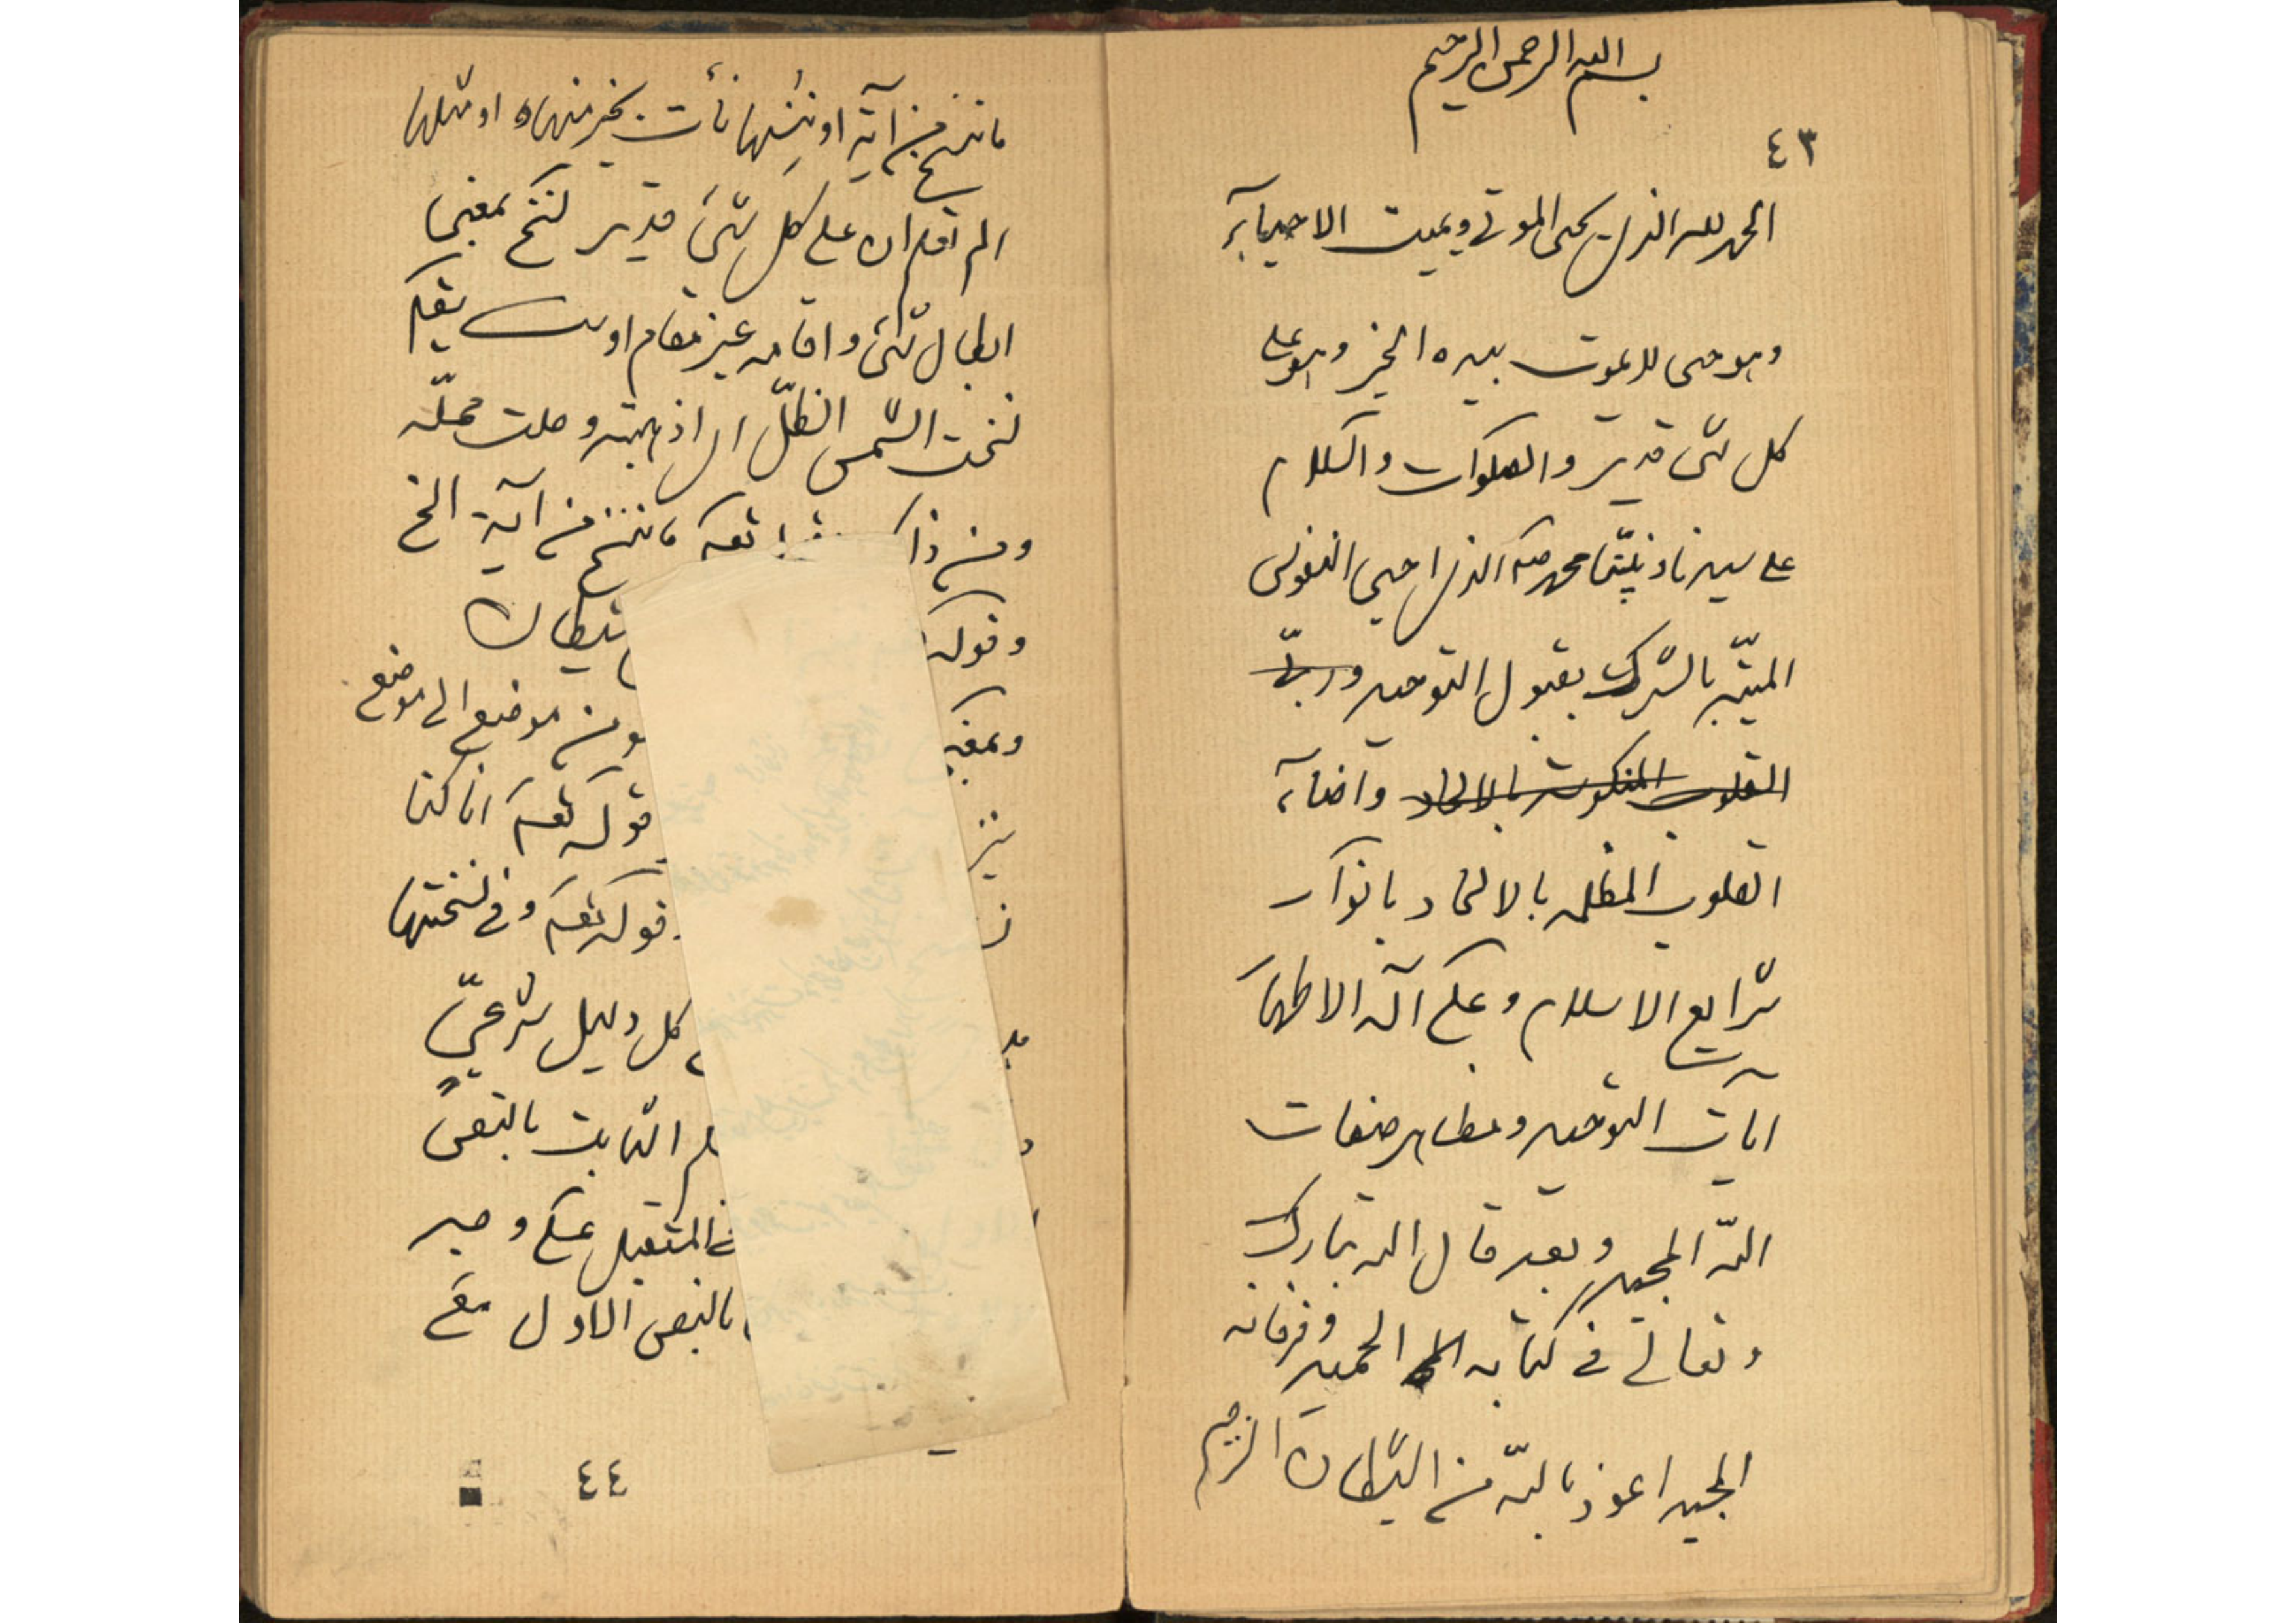 بسم الله الرحمن الرحيم
٤٣
الحمد لله الذى يحيى الموتى ويميت الاحياء
وهو حى لا يموت بيده الخير وهو على
كل شى قدير والصلوات والسلام
على سيدنا ونبيّنا محمد صلعم الذى احيى النفوس
الميّتة بالشرك بقبول التوحيد وربّـ
القلوب المنكوسة بالالحاد واضاء
القلوب المظلمة بالالحاد بانوار
شرايع الاسلام وعلى آله الاطهار
آيات التوحيد ومظاهر صفات
الله المجيد وبعد قال الله تبارك
وتعالى فى كتابه الحميد وفرقانه
المجيد اعوذ بالله من الشيطان الرجيم
ما ننسخ من آية او ننسها نأت بخير منها او مثلها
الم تعلم ان على كل شئ قدير نسخ بمعنى
ابطال شئ واقامه غير مقام اوست يقال
نسخت الشمس الظلّ اى اذهبته وحلت محلّه
ومن ذاك تعه ما ننسخ من آية الخ
وقوله شيطان
وبمعنى من موضع الى موضع
قوله تعه انا كنا
قوله تعه وفى نسختها
كل دليل شرعىّ
الثابت بالنص
المستقبل على وجه
بالنص الاول مع
٤٤